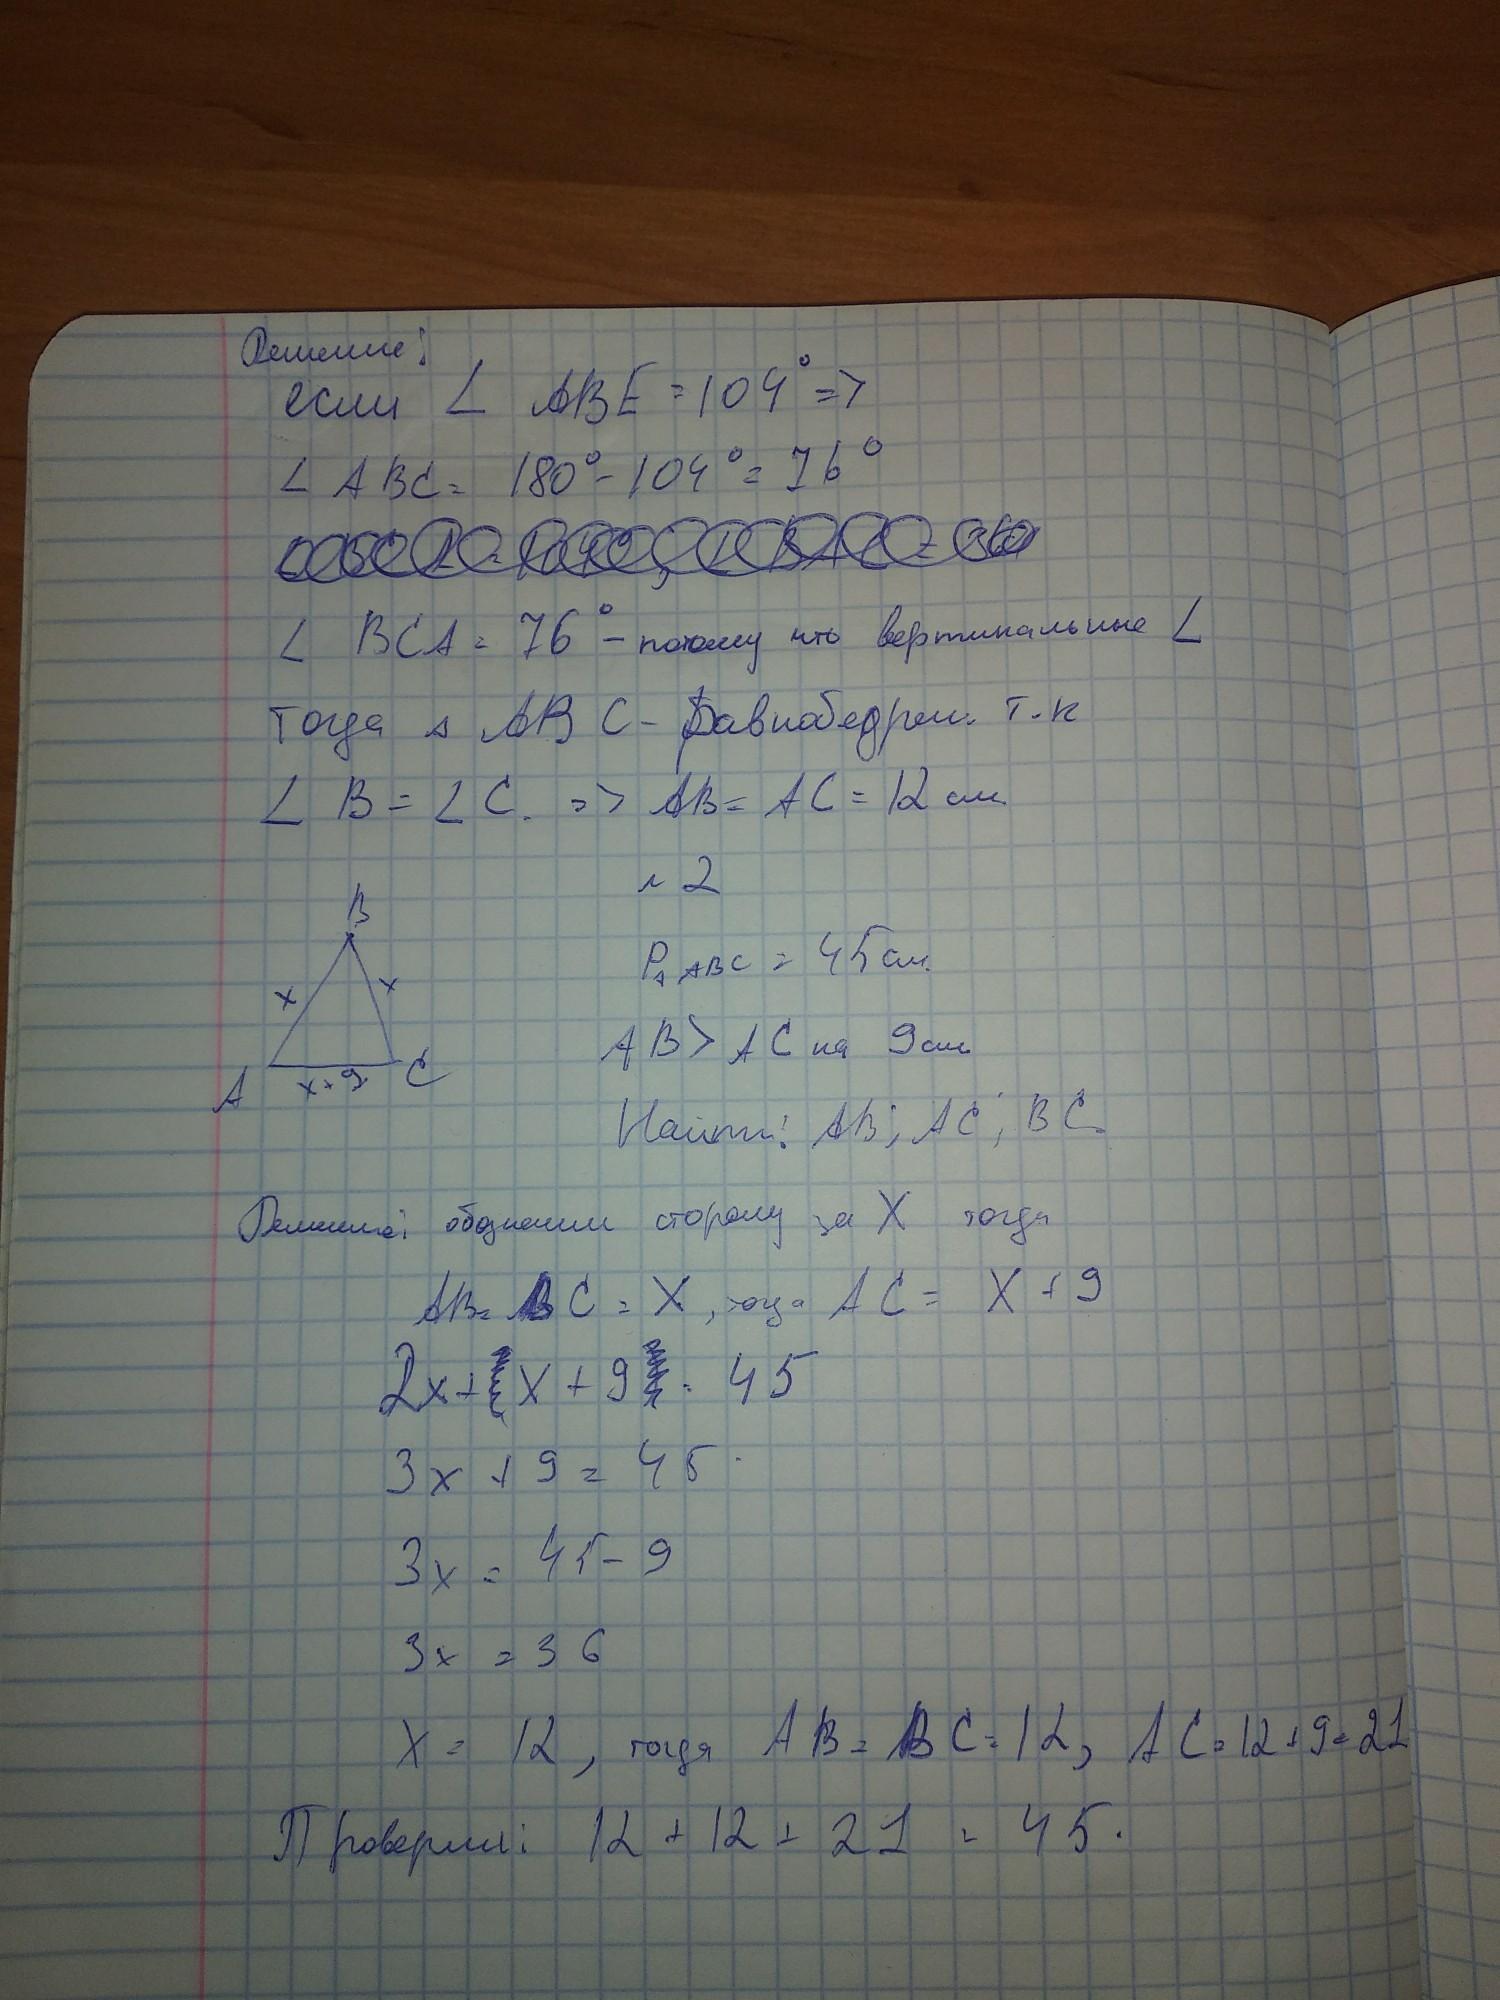 Решение:
если ∠ ABE = 104° =>
∠ ABC = 180° - 104° = 76°
∠ BCA = 76° - потому что вертикальные ∠
тогда ∆ ABC - равнобедрен. т.к
∠ B = ∠ C. => AB = AC = 12 см.
№ 2
B
x
x
A
x+9
C
P∆ABC = 45 см.
AB > AC на 9 см
Найти: AB; AC; BC.
Решение: обозначим сторону за X тогда
AB = BC = X, тогда AC = X + 9
2x + x + 9 = 45
3x + 9 = 45
3x = 45 - 9
3x = 36
X = 12, тогда AB = BC = 12, AC = 12 + 9 = 21
Проверим: 12 + 12 + 21 = 45.